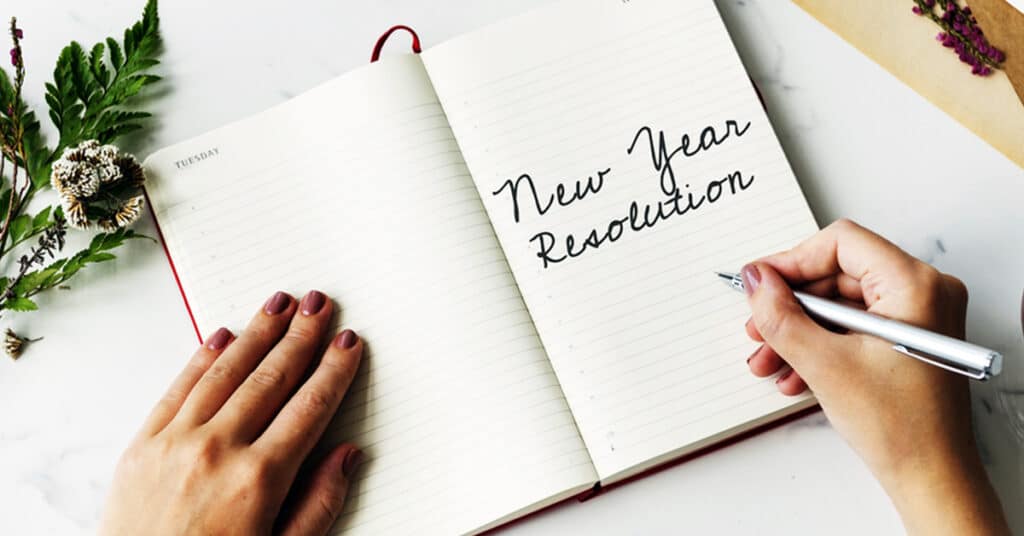 TUESDAY
New Year
Resolution